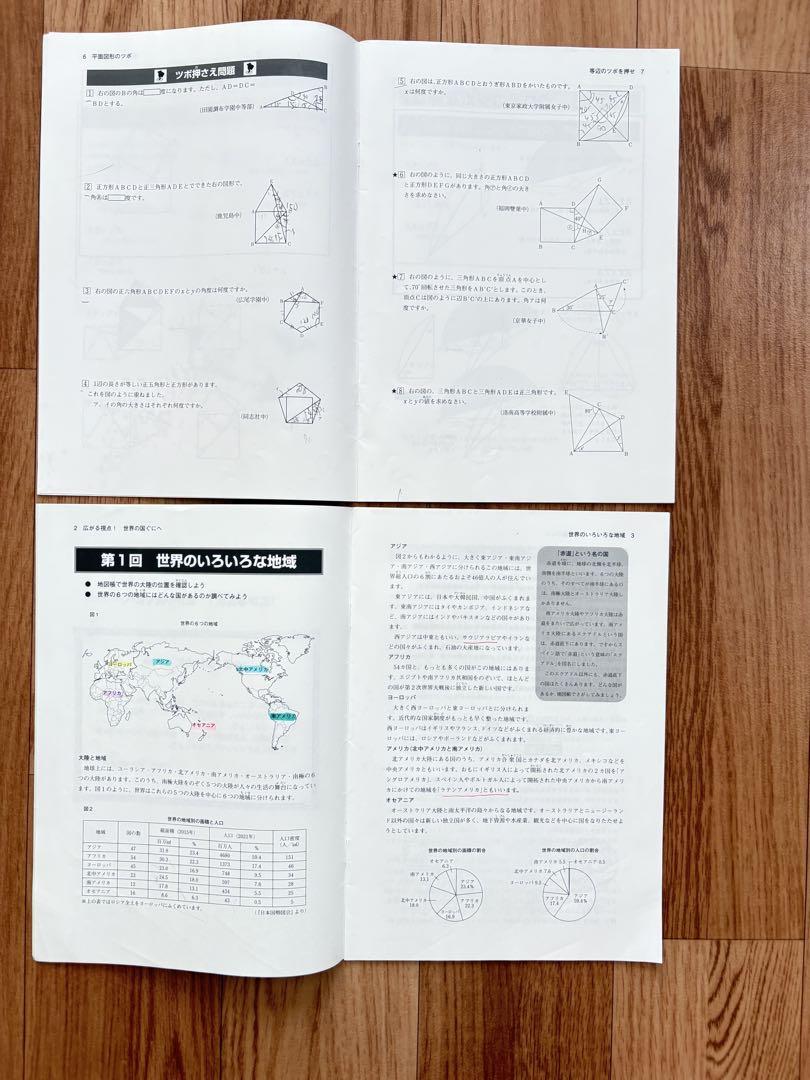 6 平面図形のツボ
ツボ押さえ問題
1 右の図のBの角は□度になります。ただし、AD=DC=
BDとする。
(田園調布学園中等部)
2 正方形ABCDと正三角形ADEとでできた右の図形で、
角あは□度です。
(鹿児島中)
3 右の図の正六角形ABCDEFのxとyの角度は何度ですか。
(広尾学園中)
4 1辺の長さが等しい正五角形と正方形があります。
これを図のように重ねました。
ア、イの角の大きさはそれぞれ何度ですか。
(同志社中)
等辺のツボを押せ 7
5 右の図は、正方形ABCDとおうぎ形ABDをかいたものです。
xは何度ですか。
(東京家政大学附属女子中)
★6 右の図のように、同じ大きさの正方形ABCD
と正方形DEFGがあります。角㋐と角㋑の大き
さを求めなさい。
(福岡雙葉中)
★7 右の図のように、三角形ABCを頂点Aを中心とし
て、70°回転させた三角形をAB'C'とします。このとき、
頂点Cは図のように辺B'C'の上にあります。角アは何
度ですか。
(京華女子中)
★8 右の図の、三角形ABCと三角形ADEは正三角形です。
xとyの値を求めなさい。
(洛南高等学校附属中)
2 広がる視点! 世界の国ぐにへ
第1回 世界のいろいろな地域
● 地図帳で世界の大陸の位置を確認しよう
● 世界の6つの地域にはどんな国があるのか調べてみよう
図1
世界の6つの地域
ヨーロッパ
アジア
北中アメリカ
アフリカ
南アメリカ
オセアニア
大陸と地域
地球上には、ユーラシア・アフリカ・北アメリカ・南アメリカ・オーストラリア・南極の6
つの大陸があります。このうち、南極大陸をのぞく5つの大陸が人々の生活の舞台になってい
ます。図1のように、世界はこれらの5つの大陸を中心に6つの地域に分けられます。
図2
世界の地域別の面積と人口
地域 国の数 総面積(2015年) 人口(2021年) 人口密度
百万㎢ % 百万人 % (人/㎢)
アジア 47 31.9 23.4 4680 59.4 151
アフリカ 54 30.2 22.3 1373 17.4 46
ヨーロッパ 45 23.0 16.9 748 9.5 34
北中アメリカ 23 24.5 18.0 597 7.6 28
南アメリカ 12 17.8 13.1 434 5.5 25
オセアニア 16 8.6 6.3 43 0.5 5
※上の表ではロシア全土をヨーロッパにふくめています。
(『日本国勢図会』より)
世界のいろいろな地域 3
アジア
図2からもわかるように、大きく東アジア・東南アジ
ア・南アジア・西アジアに分けられるこの地域には、世
界総人口の6割にあたるおよそ46億人の人が住んでい
ます。
東アジアには、日本や大韓民国、中国がふくまれま
す。東南アジアにはタイやカンボジア、インドネシアな
ど、南アジアにはインドやパキスタンなどの国々があり
ます。
西アジアは中東ともいい、サウジアラビアやイランな
どの国々がふくまれ、石油の大産地になっています。
アフリカ
54カ国と、もっとも多くの国がこの地域にはありま
す。エジプトや南アフリカ共和国をのぞいて、ほとんど
の国が第2次世界大戦後に独立した新しい国です。
ヨーロッパ
大きく西ヨーロッパと東ヨーロッパとに分けられま
す。近代的な国家制度がもっとも早く整った地域です。
西ヨーロッパはイギリスやフランス、ドイツなどがふくまれる経済的に豊かな地域です。東ヨー
ロッパには、ロシアやポーランドなどがふくまれます。
アメリカ(北中アメリカと南アメリカ)
北アメリカ大陸にある国のうち、アメリカ合衆国とカナダを北アメリカ、メキシコなどを
中央アメリカともいいます。おもにイギリス人によって開拓された北アメリカの2カ国を「ア
ングロアメリカ」、スペイン人やポルトガル人によって開拓された中央アメリカから南アメリ
カにかけての地域を「ラテンアメリカ」ともいいます。
オセアニア
オーストラリア大陸と南太平洋の島々からなる地域です。オーストラリアとニュージーラン
ド以外の国々は新しい独立国が多く、地下資源や水産業、観光などを中心に国をなりたたせよ
うとしています。
「赤道」という名の国
赤道を境に、地球の北側を北半球、
南側を南半球といいます。6つの大陸
のうち、そのすべてが南半球にあるの
は、南極大陸とオーストラリア大陸し
かありません。
南アメリカ大陸やアフリカ大陸は赤
道をまたいで広がっています。南アメ
リカ大陸にあるエクアドルという国
は、赤道直下にあります。ですからス
ペイン語で「赤道」という意味の「エク
アドル」を国名にしました。
このエクアドル以外にも、赤道直下
の国はたくさんあります。どんな国が
あるか、地図帳でさがしてみましょう。
世界の地域別の面積の割合
オセアニア 6.3
南アメリカ 13.1
北中アメリカ 18.0
アジア 23.4%
アフリカ 22.3
ヨーロッパ 16.9
世界の地域別の人口の割合
オセアニア 0.5
南アメリカ 5.5
北中アメリカ 7.6
ヨーロッパ 9.5
アフリカ 17.4
アジア 59.4%